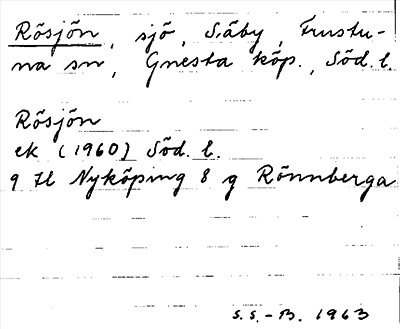 Rösjön, sjö, Säby, Frustu-
na sn, Gnesta köp., Söd. l.
Rösjön
ek (1960) Söd. l.
9 H Nyköping 8 g Rönnberga
S.S.-B. 1963